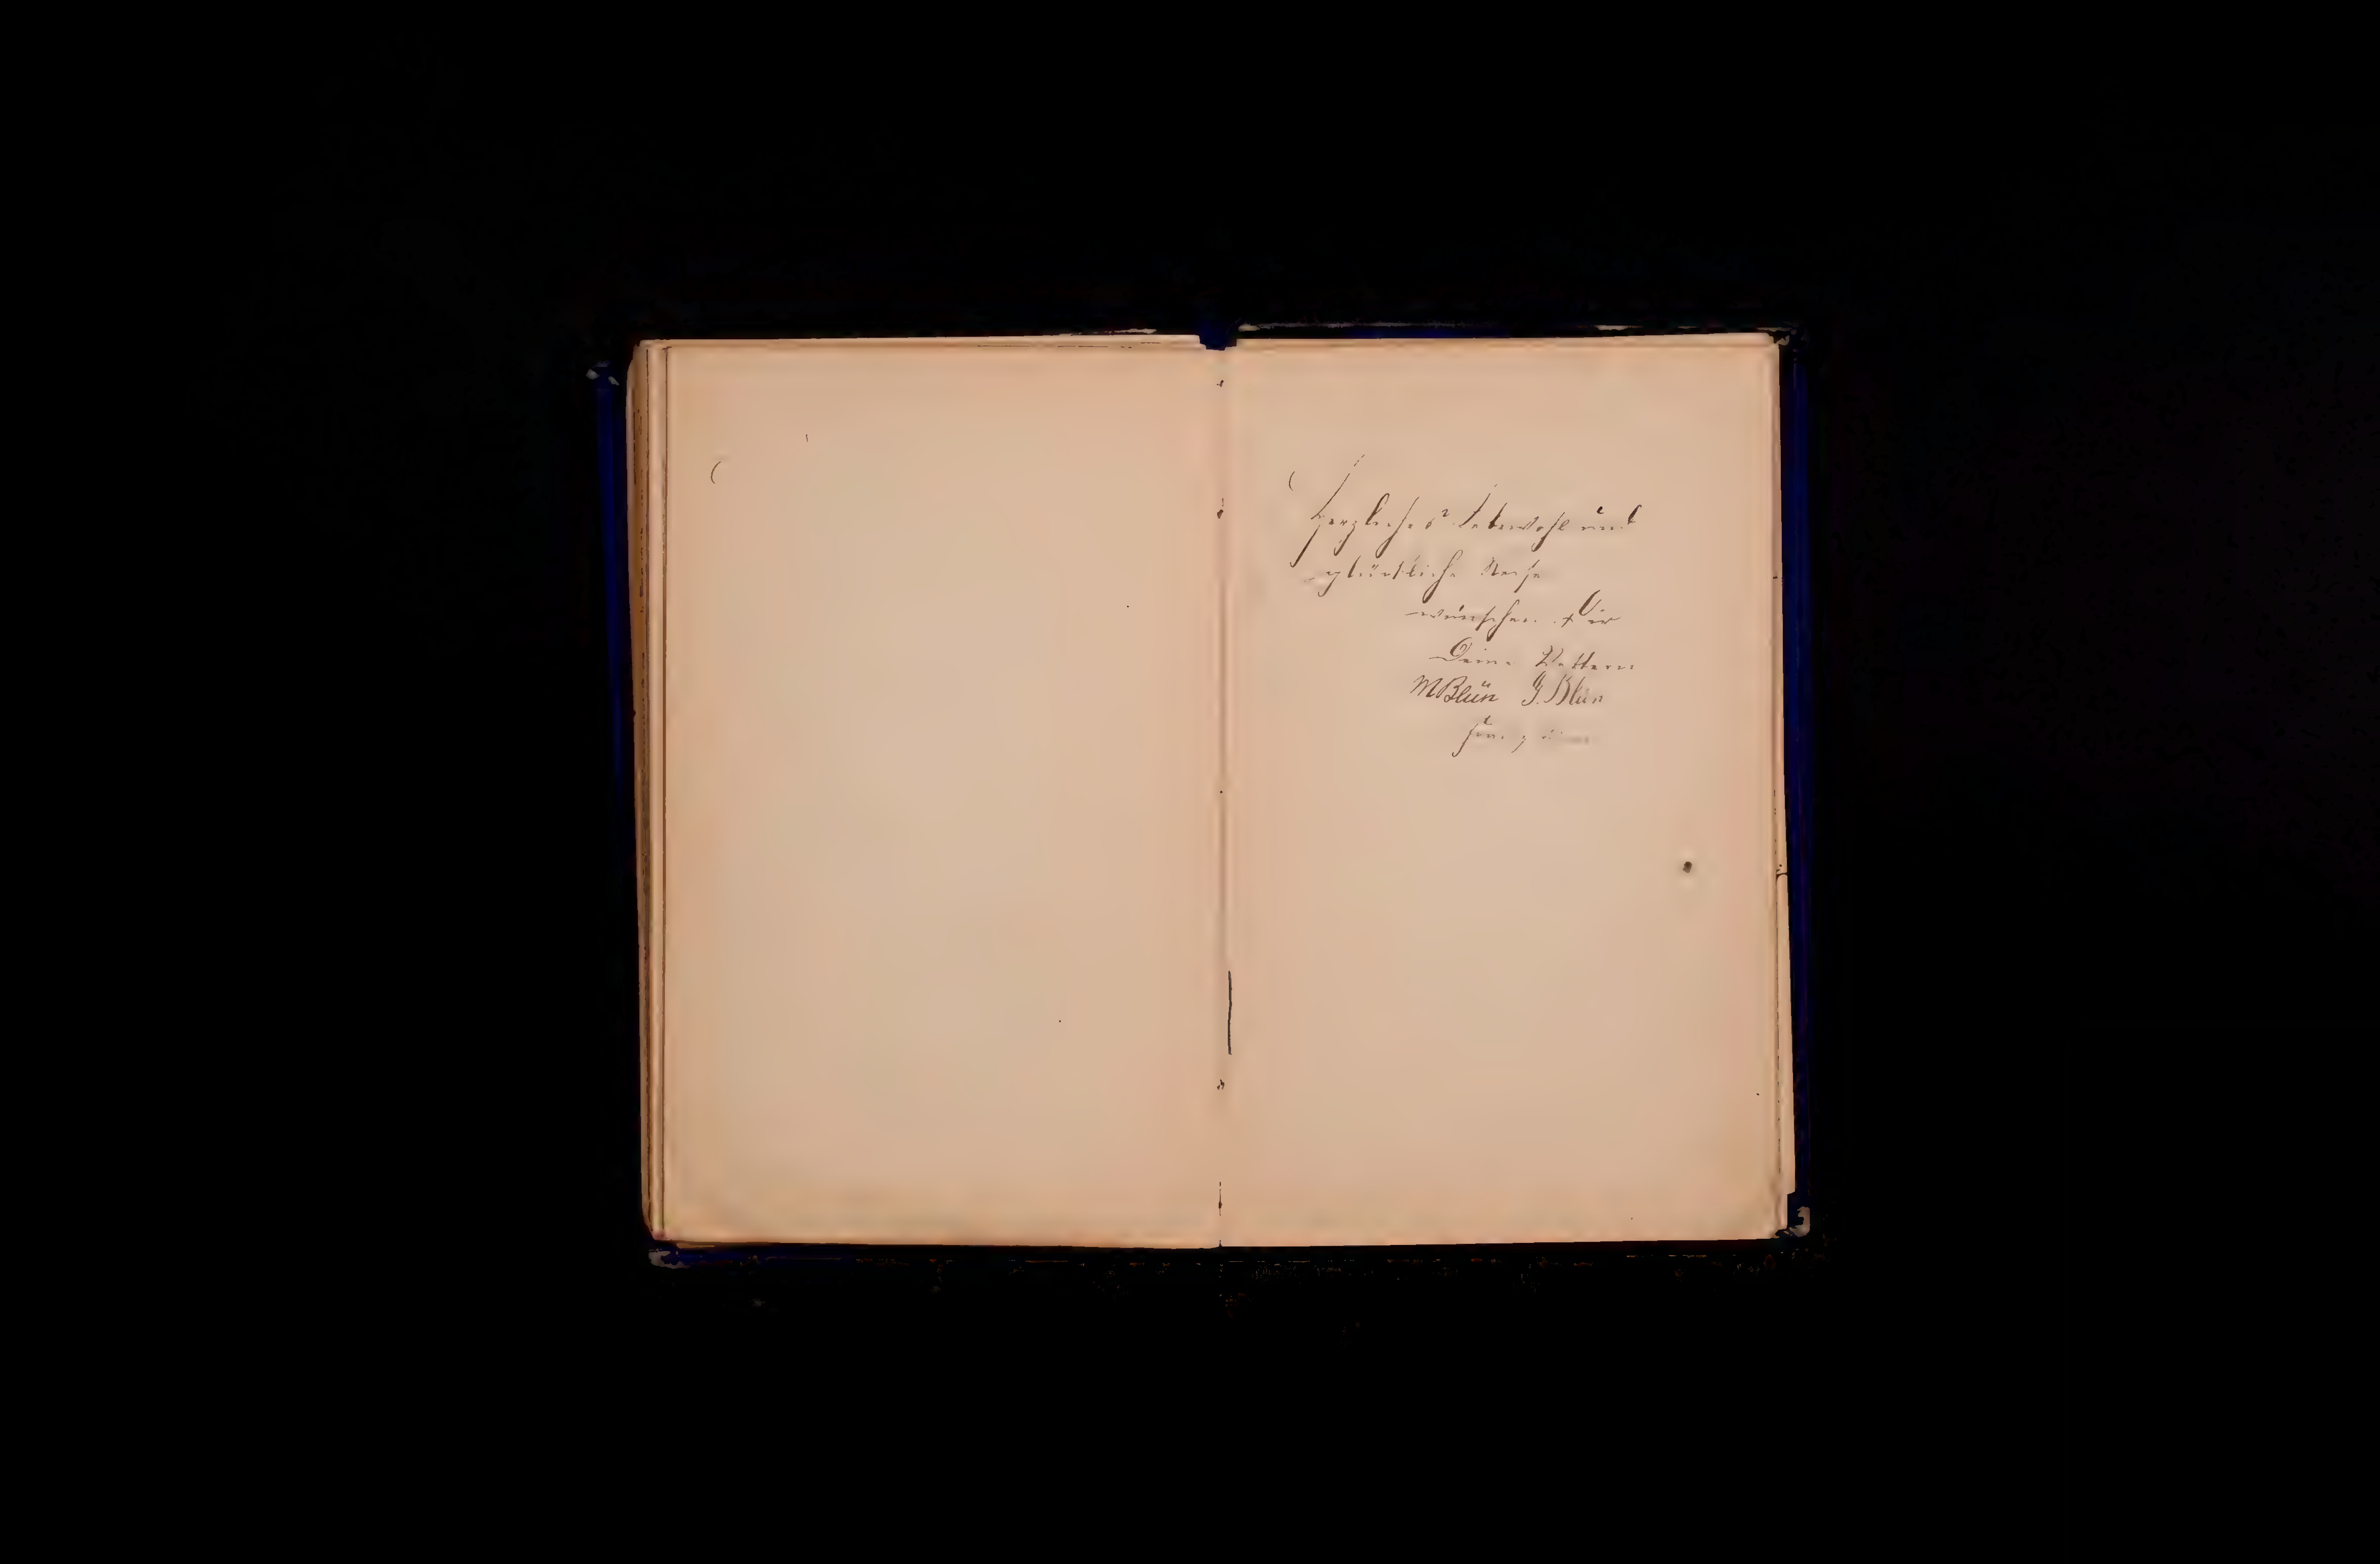 Herzliches Lebewohl und
glückliche Reise
wünschen Dir
Deine Vettern
M Blün J. Blün